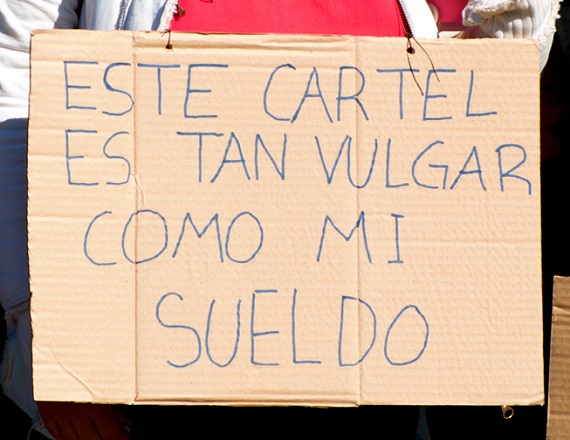 ESTE CARTEL
ES TAN VULGAR
COMO MI
SUELDO